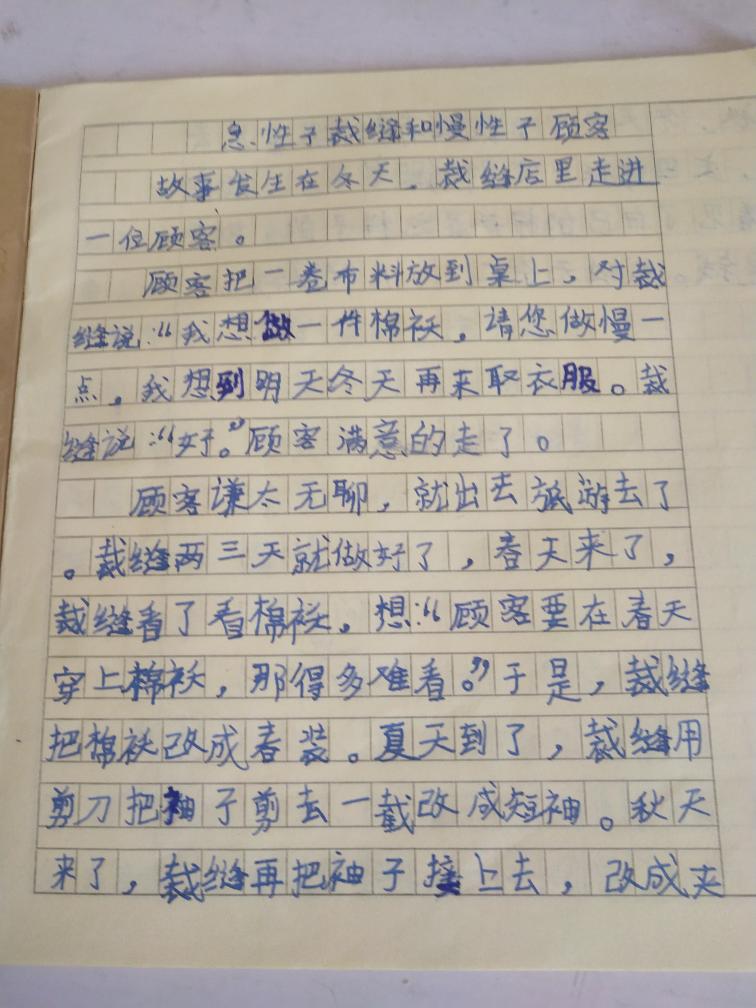 急性子裁缝和慢性子顾客
故事发生在冬天，裁缝店里走进
一位顾客。
顾客把一卷布料放到桌上，对裁
缝说：“我想做一件棉袄，请您做慢一
点，我想到明天冬天再来取衣服。裁
缝说：“好。”顾客满意的走了。
顾客谦太无聊，就出去旅游去了
。裁缝两三天就做好了，春天来了，
裁缝看了看棉袄。想：“顾客要在春天
穿上棉袄，那得多难看。”于是，裁缝
把棉袄改成春装。夏天到了，裁缝用
剪刀把袖子剪去一截改成短袖。秋天
来了，裁缝再把袖子接上去，改成夹